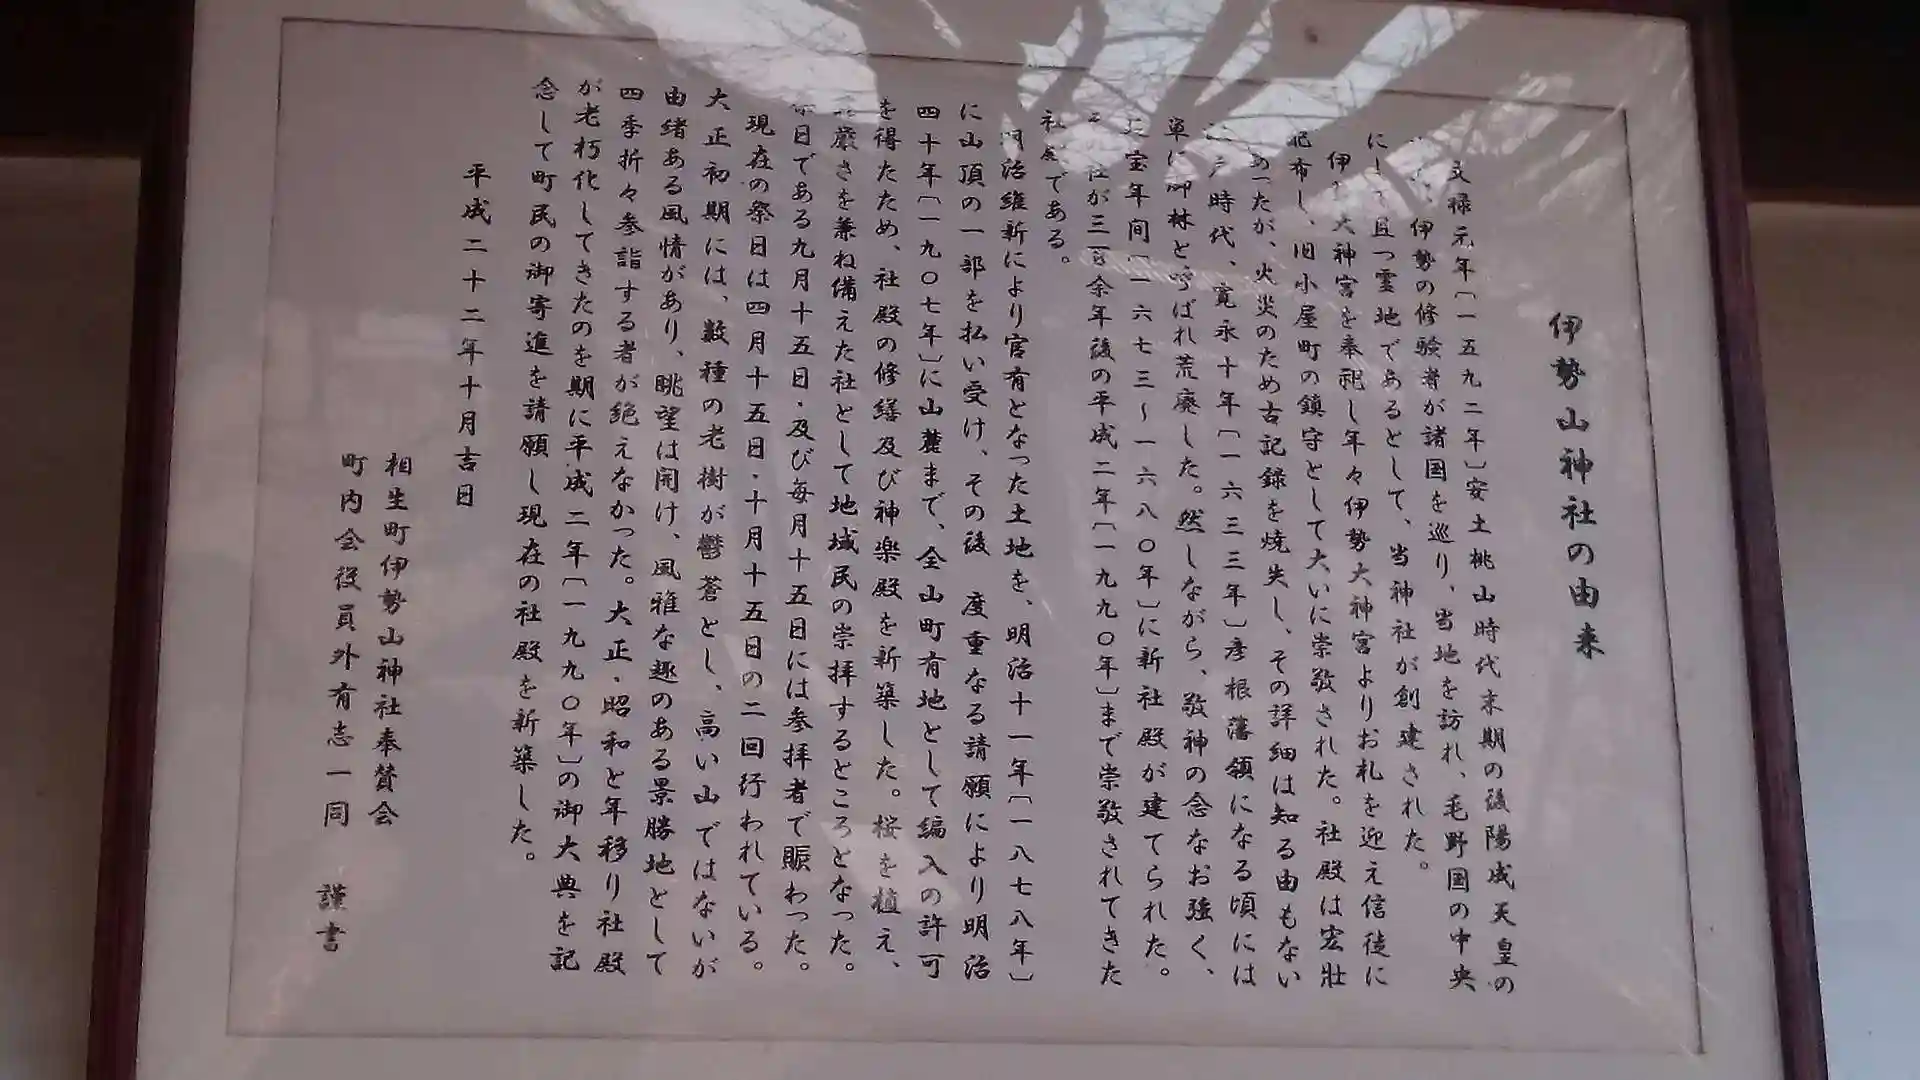 伊勢山神社の由来
文禄元年〔一五九二年〕安土桃山時代末期の後陽成天皇の
伊勢の修験者が諸国を巡り、当地を訪れ、毛野国の中央
にして且つ霊地であるとして、当神社が創建された。
伊 大神宮を奉祀し年々伊勢大神宮よりお札を迎え信徒に
配布し、旧小屋町の鎮守として大いに崇敬された。社殿は宏壮
あったが、火災のため古記録を焼失し、その詳細は知る由もない
時代、寛永十年〔一六三三年〕彦根藩領になる頃には
単に御林と呼ばれ荒廃した。然しながら、敬神の念なお強く、
宝年間〔一六七三～一六八〇年〕に新社殿が建てられた。
社が三百余年後の平成二年〔一九九〇年〕まで崇敬されてきた
社殿である。
明治維新により官有となった土地を、明治十一年〔一八七八年〕
に山頂の一部を払い受け、その後 度重なる請願により明治
四十年〔一九〇七年〕に山麓まで、全山町有地として編入の許可
を得たため、社殿の修繕及び神楽殿を新築した。桜を植え、
厳さを兼ね備えた社として地域民の崇拝するところとなった。
祭日である九月十五日・及び毎月十五日には参拝者で賑わった。
現在の祭日は四月十五日・十月十五日の二回行われている。
大正初期には、数種の老樹が鬱蒼とし、高い山ではないが
由緒ある風情があり、眺望は開け、風雅な趣のある景勝地として
四季折々参詣する者が絶えなかった。大正・昭和と年移り社殿
が老朽化してきたのを期に平成二年〔一九九〇年〕の御大典を記
念して町民の御寄進を請願し現在の社殿を新築した。
平成二十二年十月吉日
相生町伊勢山神社奉賛会
町内会役員外有志一同 謹書